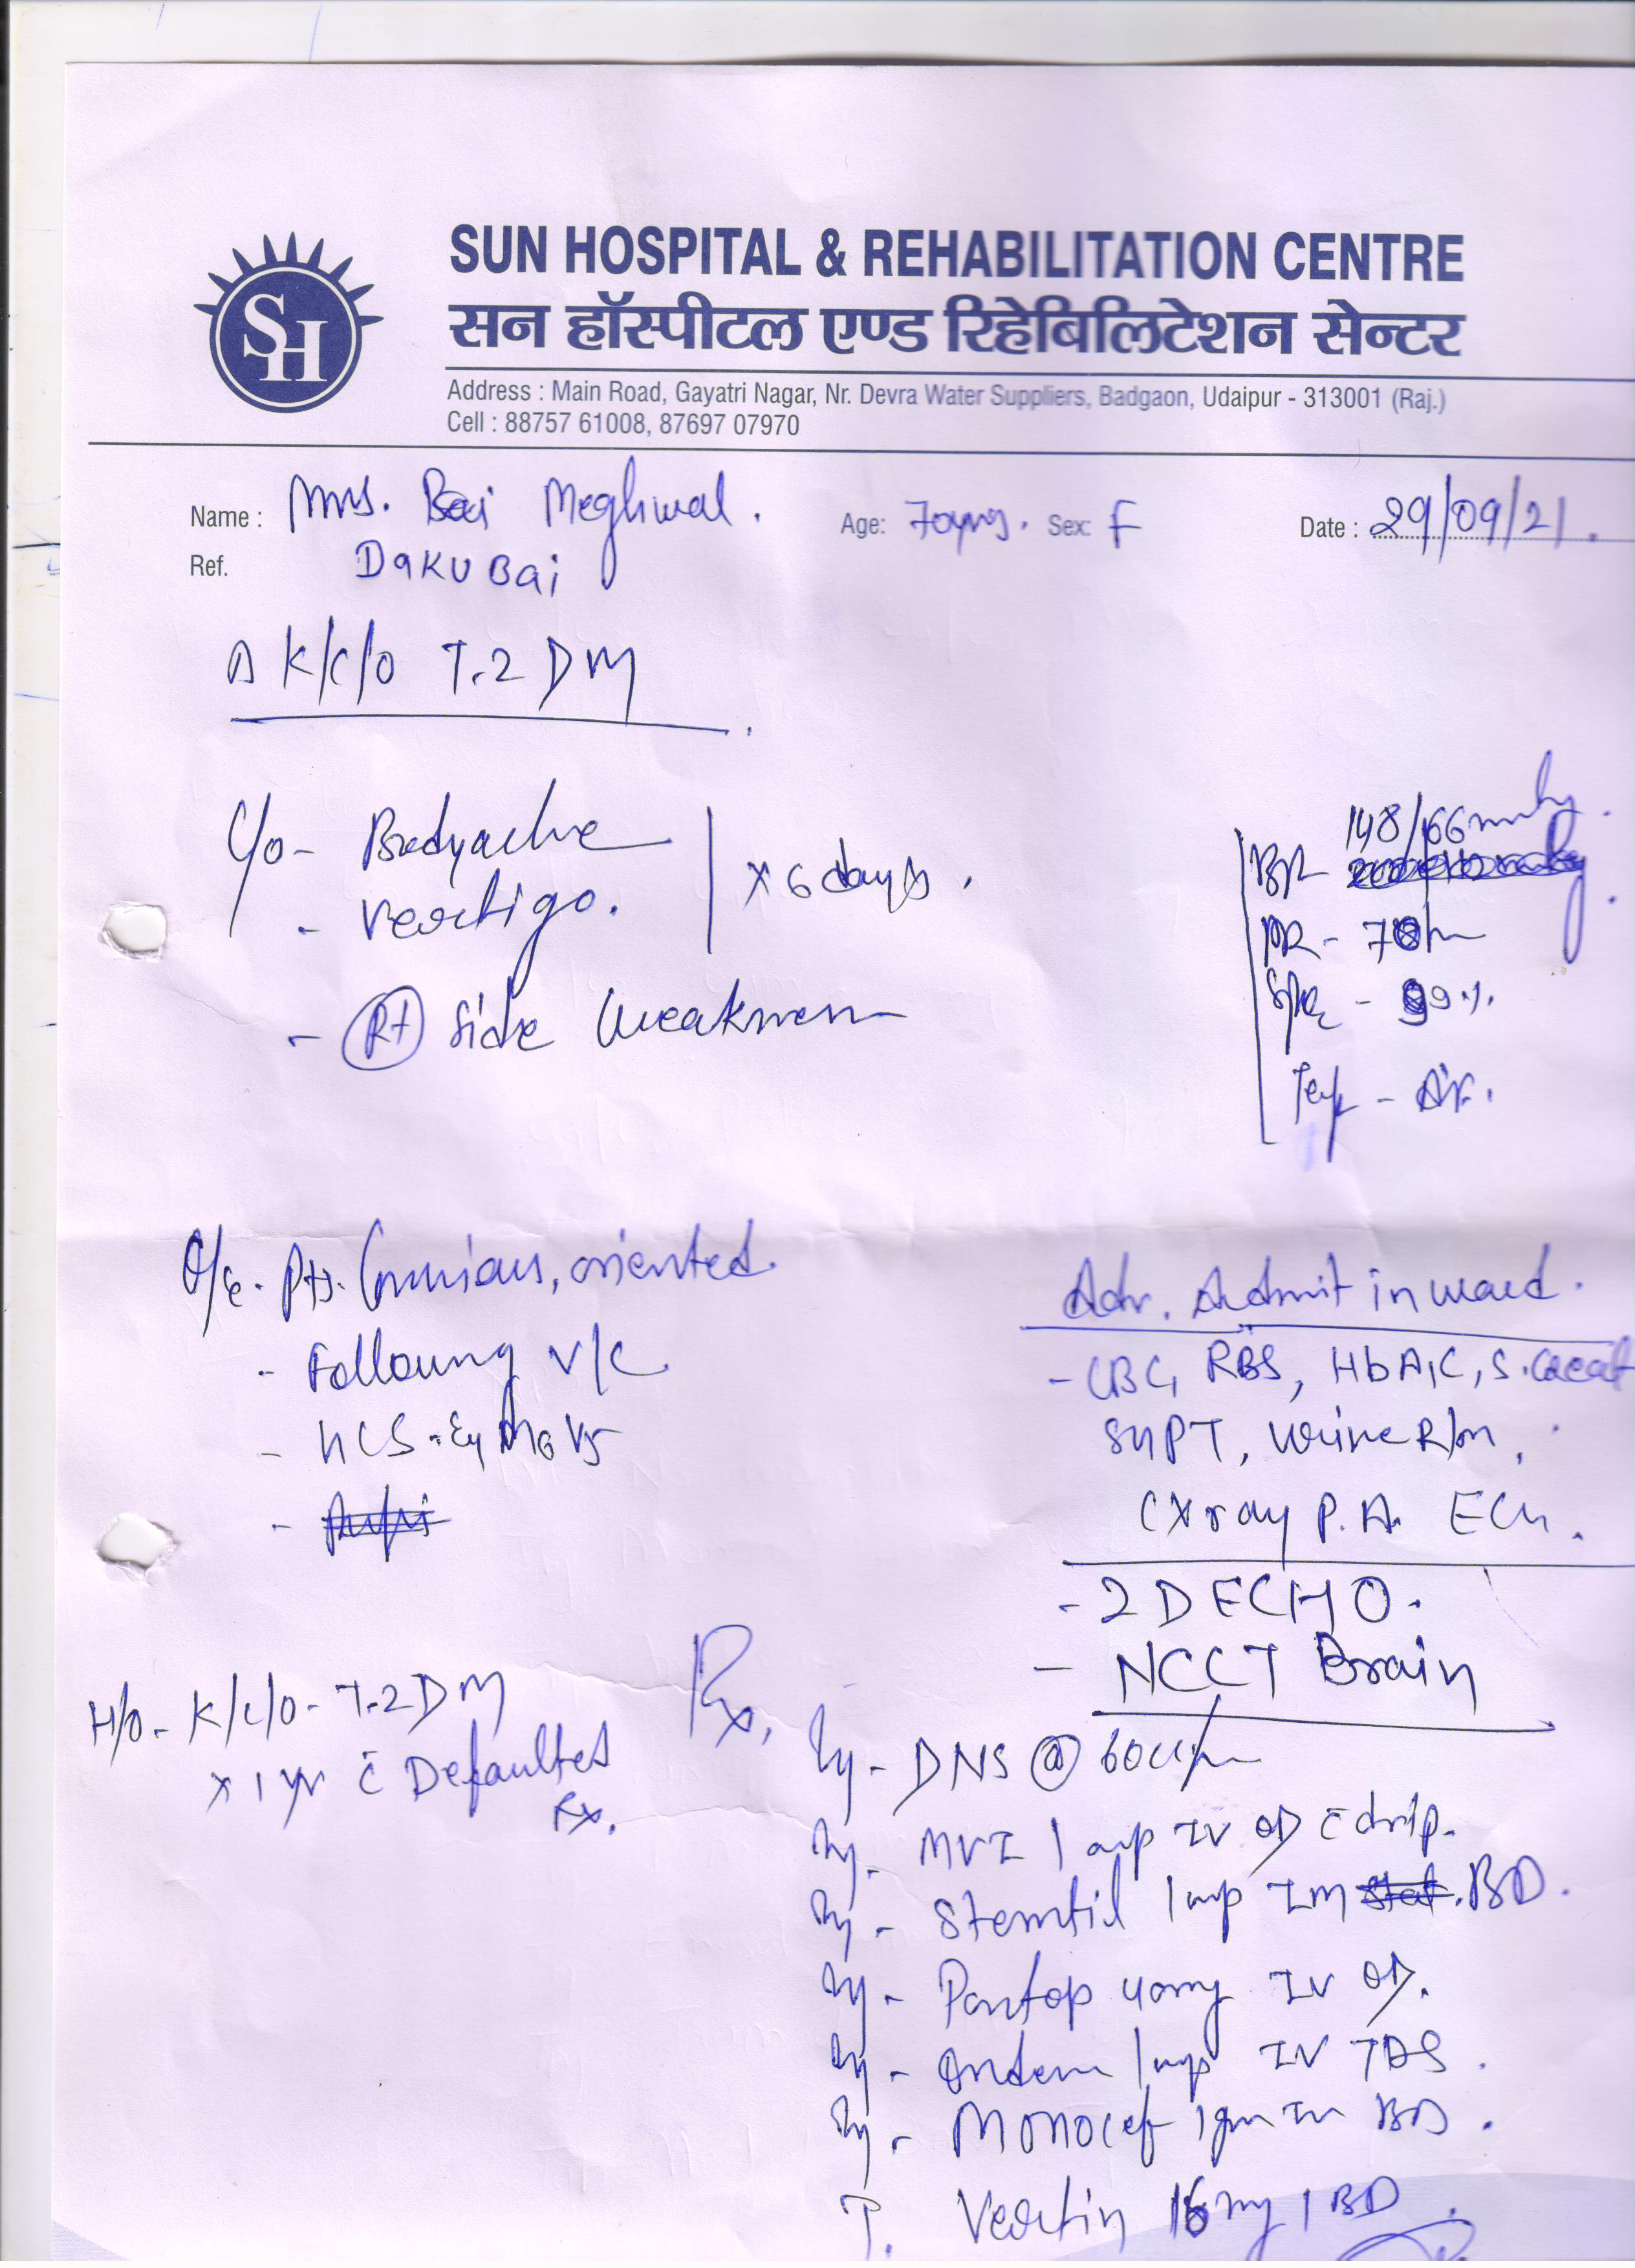 SH
SUN HOSPITAL & REHABILITATION CENTRE
सन हॉस्पीटल एण्ड रिहेबिलिटेशन सेन्टर
Address : Main Road, Gayatri Nagar, Nr. Devra Water Suppliers, Badgaon, Udaipur - 313001 (Raj.)
Cell : 88757 61008, 87697 07970
Name : Mrs. Bai Meghwal. Age: 70yrs. Sex: F Date : 29/09/21.
Ref. Daku Bai
∆ K/c/o T.2 DM
C/o - Bodyache
- Vertigo. x 6 days.
- Rt Side Weakness
148/66mmhg.
BP-
PR - 78/m
SpO2 - 99%.
Temp - Af.
O/e. Pt. Conscious, oriented.
- Following V/C
- GCS - E4 M6 V5
Adv. Admit in ward.
- CBC, RBS, HbA1C, S. Creat
SGPT, Urine R/m,
CXray P.A. ECG.
- 2D ECHO.
- NCCT Brain
H/o - K/c/o - T.2 DM
x 1 yr c̄ Defaulted
Rx.
Rx,
Inj - DNS @ 60cc/hr
Inj - MVI 1 amp IV OD c̄ drip.
Inj - Stemetil 1 amp IM Stat. BD.
Inj - Pantop 40mg IV OD.
Inj - Ondem 1 amp IV TDS.
Inj - Monocef 1gm IV BD.
T. Vertin 16mg 1 BD